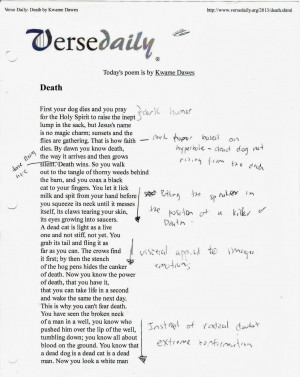 Verse Daily: Death by Kwame Dawes
http://www.versedaily.org/2013/death.shtml
Versedaily
®
Today's poem is by Kwame Dawes
Death
First your dog dies and you pray
for the Holy Spirit to raise the inept
lump in the sack, but Jesus's name
is no magic charm; sunsets and the
flies are gathering. That is how faith
dies. By dawn you know death,
the way it arrives and then grows
silent. Death wins. So you walk
out to the tangle of thorny weeds behind
the barn, and you coax a black
cat to your fingers. You let it lick
milk and spit from your hand before
you squeeze its neck until it messes
itself, its claws tearing your skin,
its eyes growing into saucers.
A dead cat is light as a live
one and not stiff, not yet. You
grab its tail and fling it as
far as you can. The crows find
it first; by then the stench
of the hog pens hides the canker
of death. Now you know the power
of death, that you have it,
that you can take life in a second
and wake the same next day.
This is why you can't fear death.
You have seen the broken neck
of a man in a well, you know who
pushed him over the lip of the well,
tumbling down; you know all about
blood on the ground. You know that
a dead dog is a dead cat is a dead
man. Now you look a white man
dark humor
dark humor based on
hyperbole - dead dog not
rising from the dead
the speaker in
the position of a killer of
Death
visceral appeal to
emotions
Instead of radical doubt
extreme confirmation